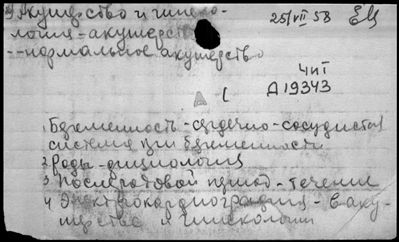 Акушерство и гинеко-
логия-акушерство
--нормальное акушерство
25/VII 58
ЧИТ
Д19343
1. Беременность-сердечно-сосудистая
система при беременности
2. Роды-физиология
3. Послеродовой период-течение
4. Электрокардиография-в аку-
шерстве и гинекологии